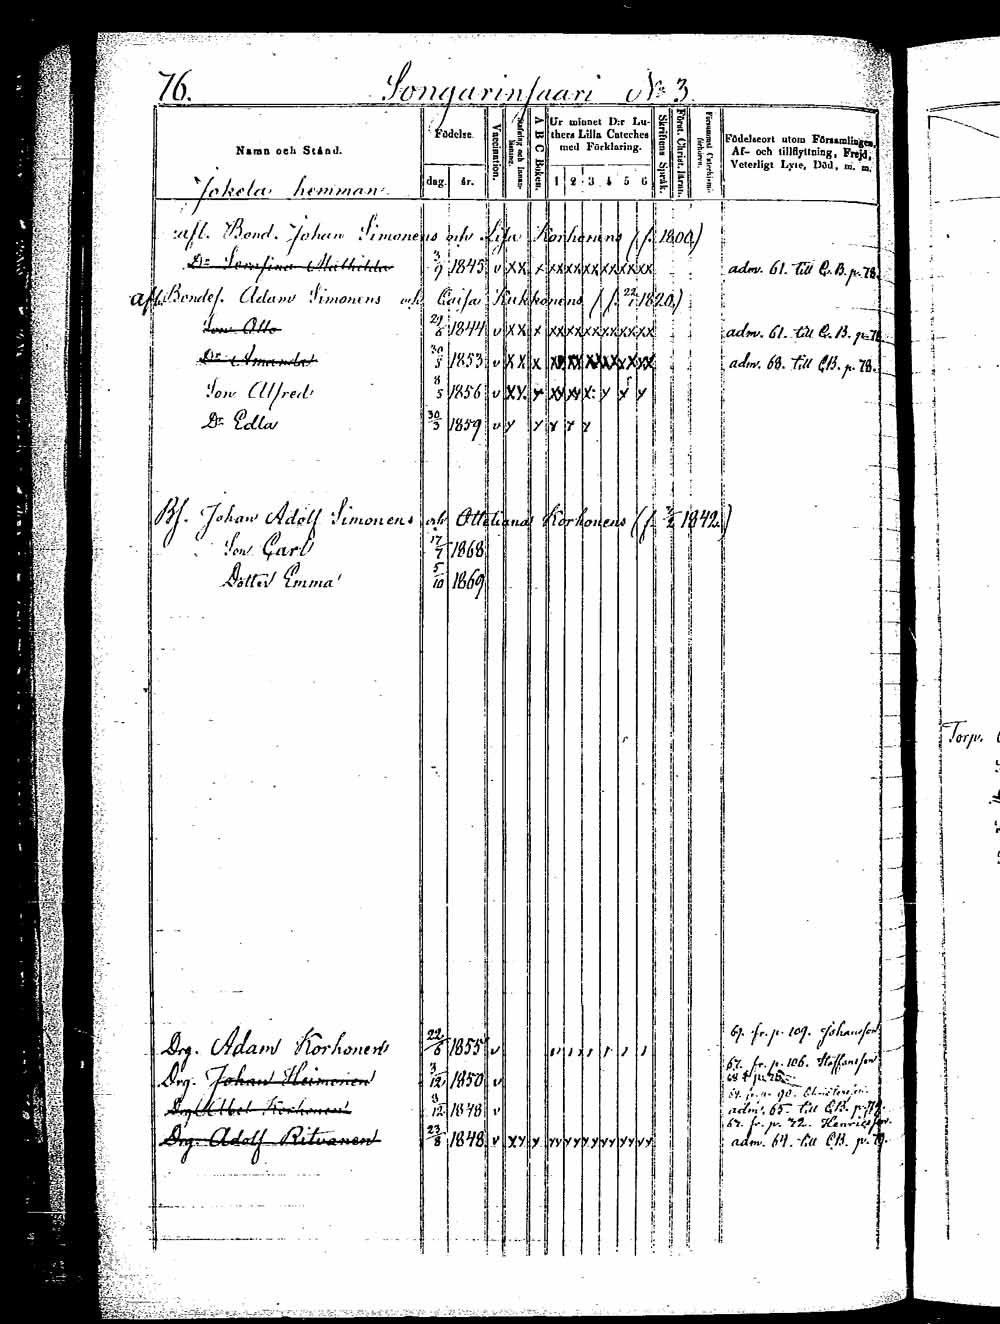 76. Songarinsaari No 3
Namn och Stånd.
Födelse.
dag. år.
Vaccination.
A B C Boken.
Ur minnet D:r Luthers Lilla Cateches med Förklaring.
1 2 3 4 5 6
Skriftens Språk.
Först. Christ. läran.
Födelseort utom Församlingen, Af- och tillflyttning, Frejd, Veterligt Lyte, Död, m. m.
Jokela hemman
afl. Bond. Johan Simonens och Lisa Korhonens (f. 1800)
Dr Serafina Mathilda 3/9 1845 v xx x xxxxxxxxxxxx adm. 61. till C. B. p. 78.
afl. Bondes. Adam Simonens och Caisa Kukkonens (f. 22/1 1820)
Son Otto 29/6 1844 v xx x xxxxxxxxxxxx adm. 61. till C. B. p. 78
Dr Amanda 30/5 1853 v xx x adm. 68. till C.B. p. 78.
Son Alfred 8/5 1856 v xx x
Dr Edla 30/3 1859 v
Bs. Johan Adolf Simonens och Ottiliana Korhonens (f. 1842)
Son Carl 17/7 1868
Dotter Emma 5/10 1869
Drg. Adam Korhonen 22/6 1855 v
69. fr. p. 109. Johansson
Drg. Johan Heimonen 3/12 1850 v
67. fr. p. 106. Staffansson
Drg. Abel Korhonen 3/12 1848 v
adm. 65. till C.B. p. 79.
67. fr. p. 72. Henricsson
Drg. Adolf Ritvanen 23/8 1848 v
adm. 64. till C.B. p. 79.
Torp.